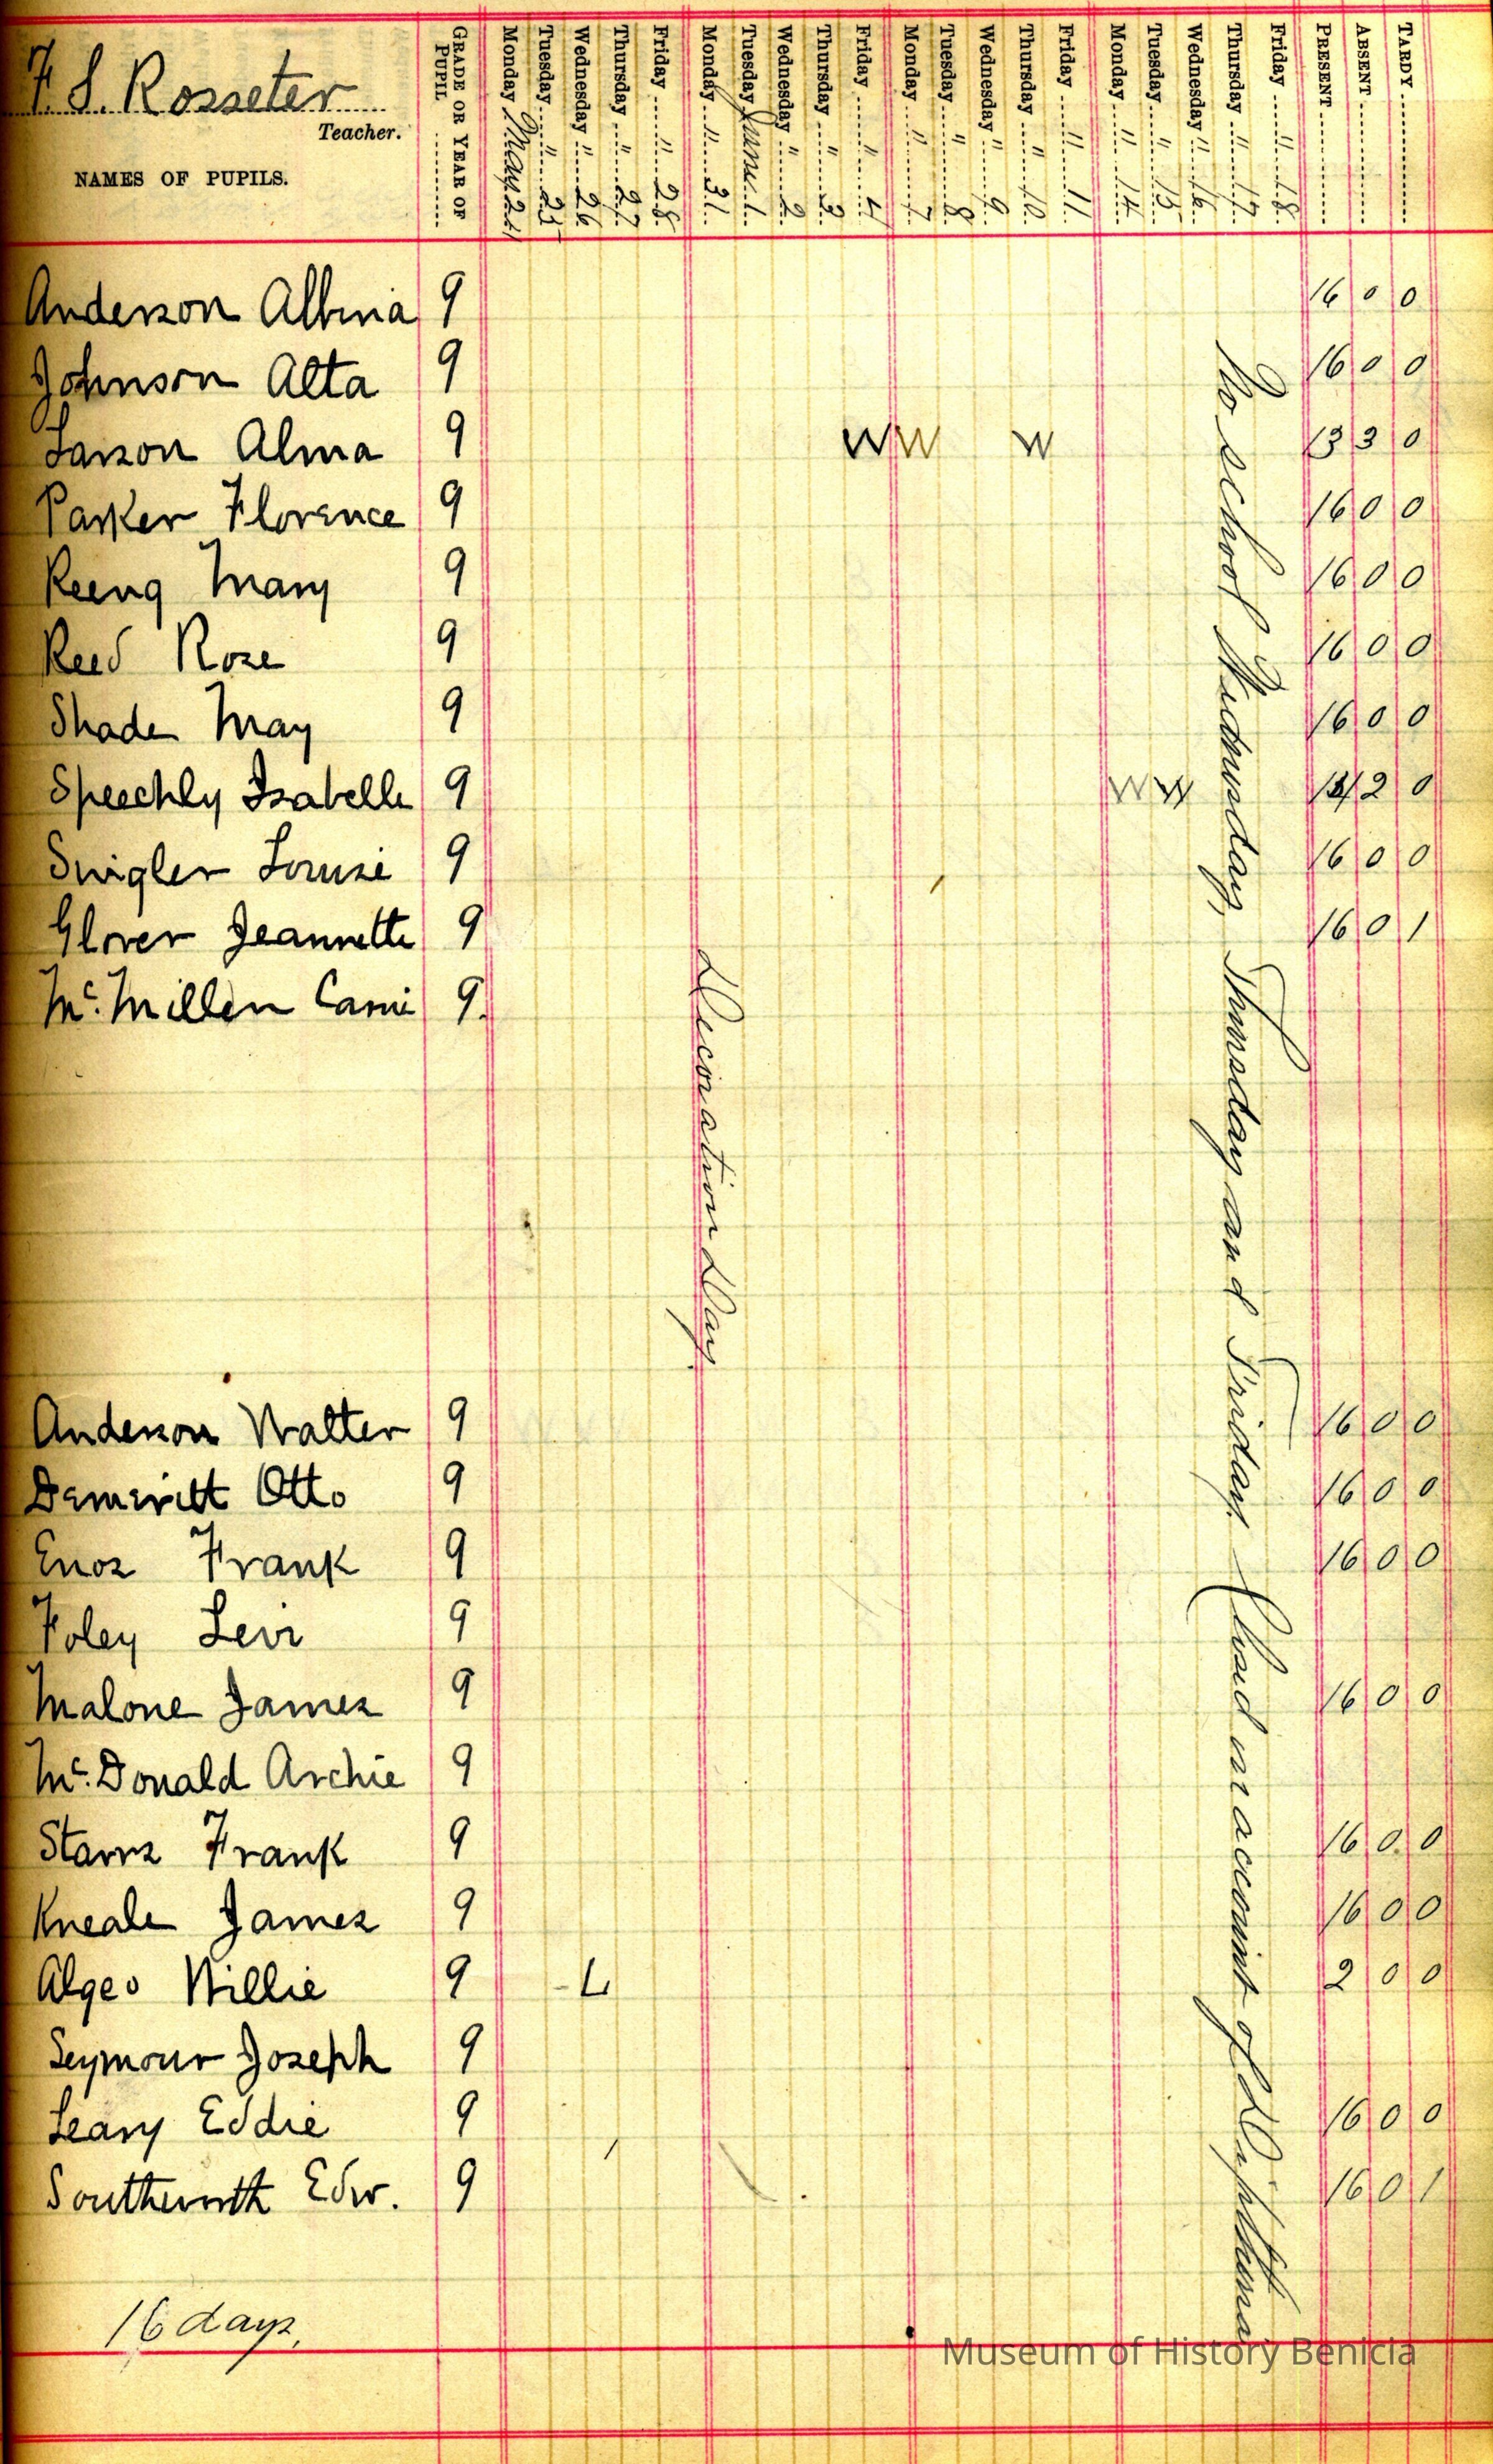 F. S. Rosseter
Teacher.
NAMES OF PUPILS.
GRADE OR YEAR OF PUPIL
Monday May 24
Tuesday " 25
Wednesday " 26
Thursday " 27
Friday " 28
Monday " 31
Tuesday June 1
Wednesday " 2
Thursday " 3
Friday " 4
Monday " 7
Tuesday " 8
Wednesday " 9
Thursday " 10
Friday " 11
Monday " 14
Tuesday " 15
Wednesday " 16
Thursday " 17
Friday " 18
PRESENT
ABSENT
TARDY
Anderson Albina 9 16 0 0
Johnson Alta 9 16 0 0
Larson Alma 9 W W W 13 3 0
Parker Florence 9 16 0 0
Mary 9 16 0 0
Reed Rose 9 16 0 0
Shade May 9 16 0 0
Speechly Isabelle 9 W W 14 2 0
Swigler Louise 9 16 0 0
Glover Jeannette 9 16 0 1
Mc. Millen 9.
Decoration Day.
No school Wednesday, Thursday and Friday. Closed on account of Diphtheria
Anderson Walter 9 16 0 0
Demeritt Otto 9 16 0 0
Enos Frank 9 16 0 0
Foley Levi 9
Malone James 9 16 0 0
Mc. Donald Archie 9
Starrs Frank 9 16 0 0
Kneale James 9 16 0 0
Algeo Willie 9 L 2 0 0
Seymour Joseph 9
Leary Eddie 9 16 0 0
Southworth Edw. 9 16 0 1
16 days.
Museum of History Benicia